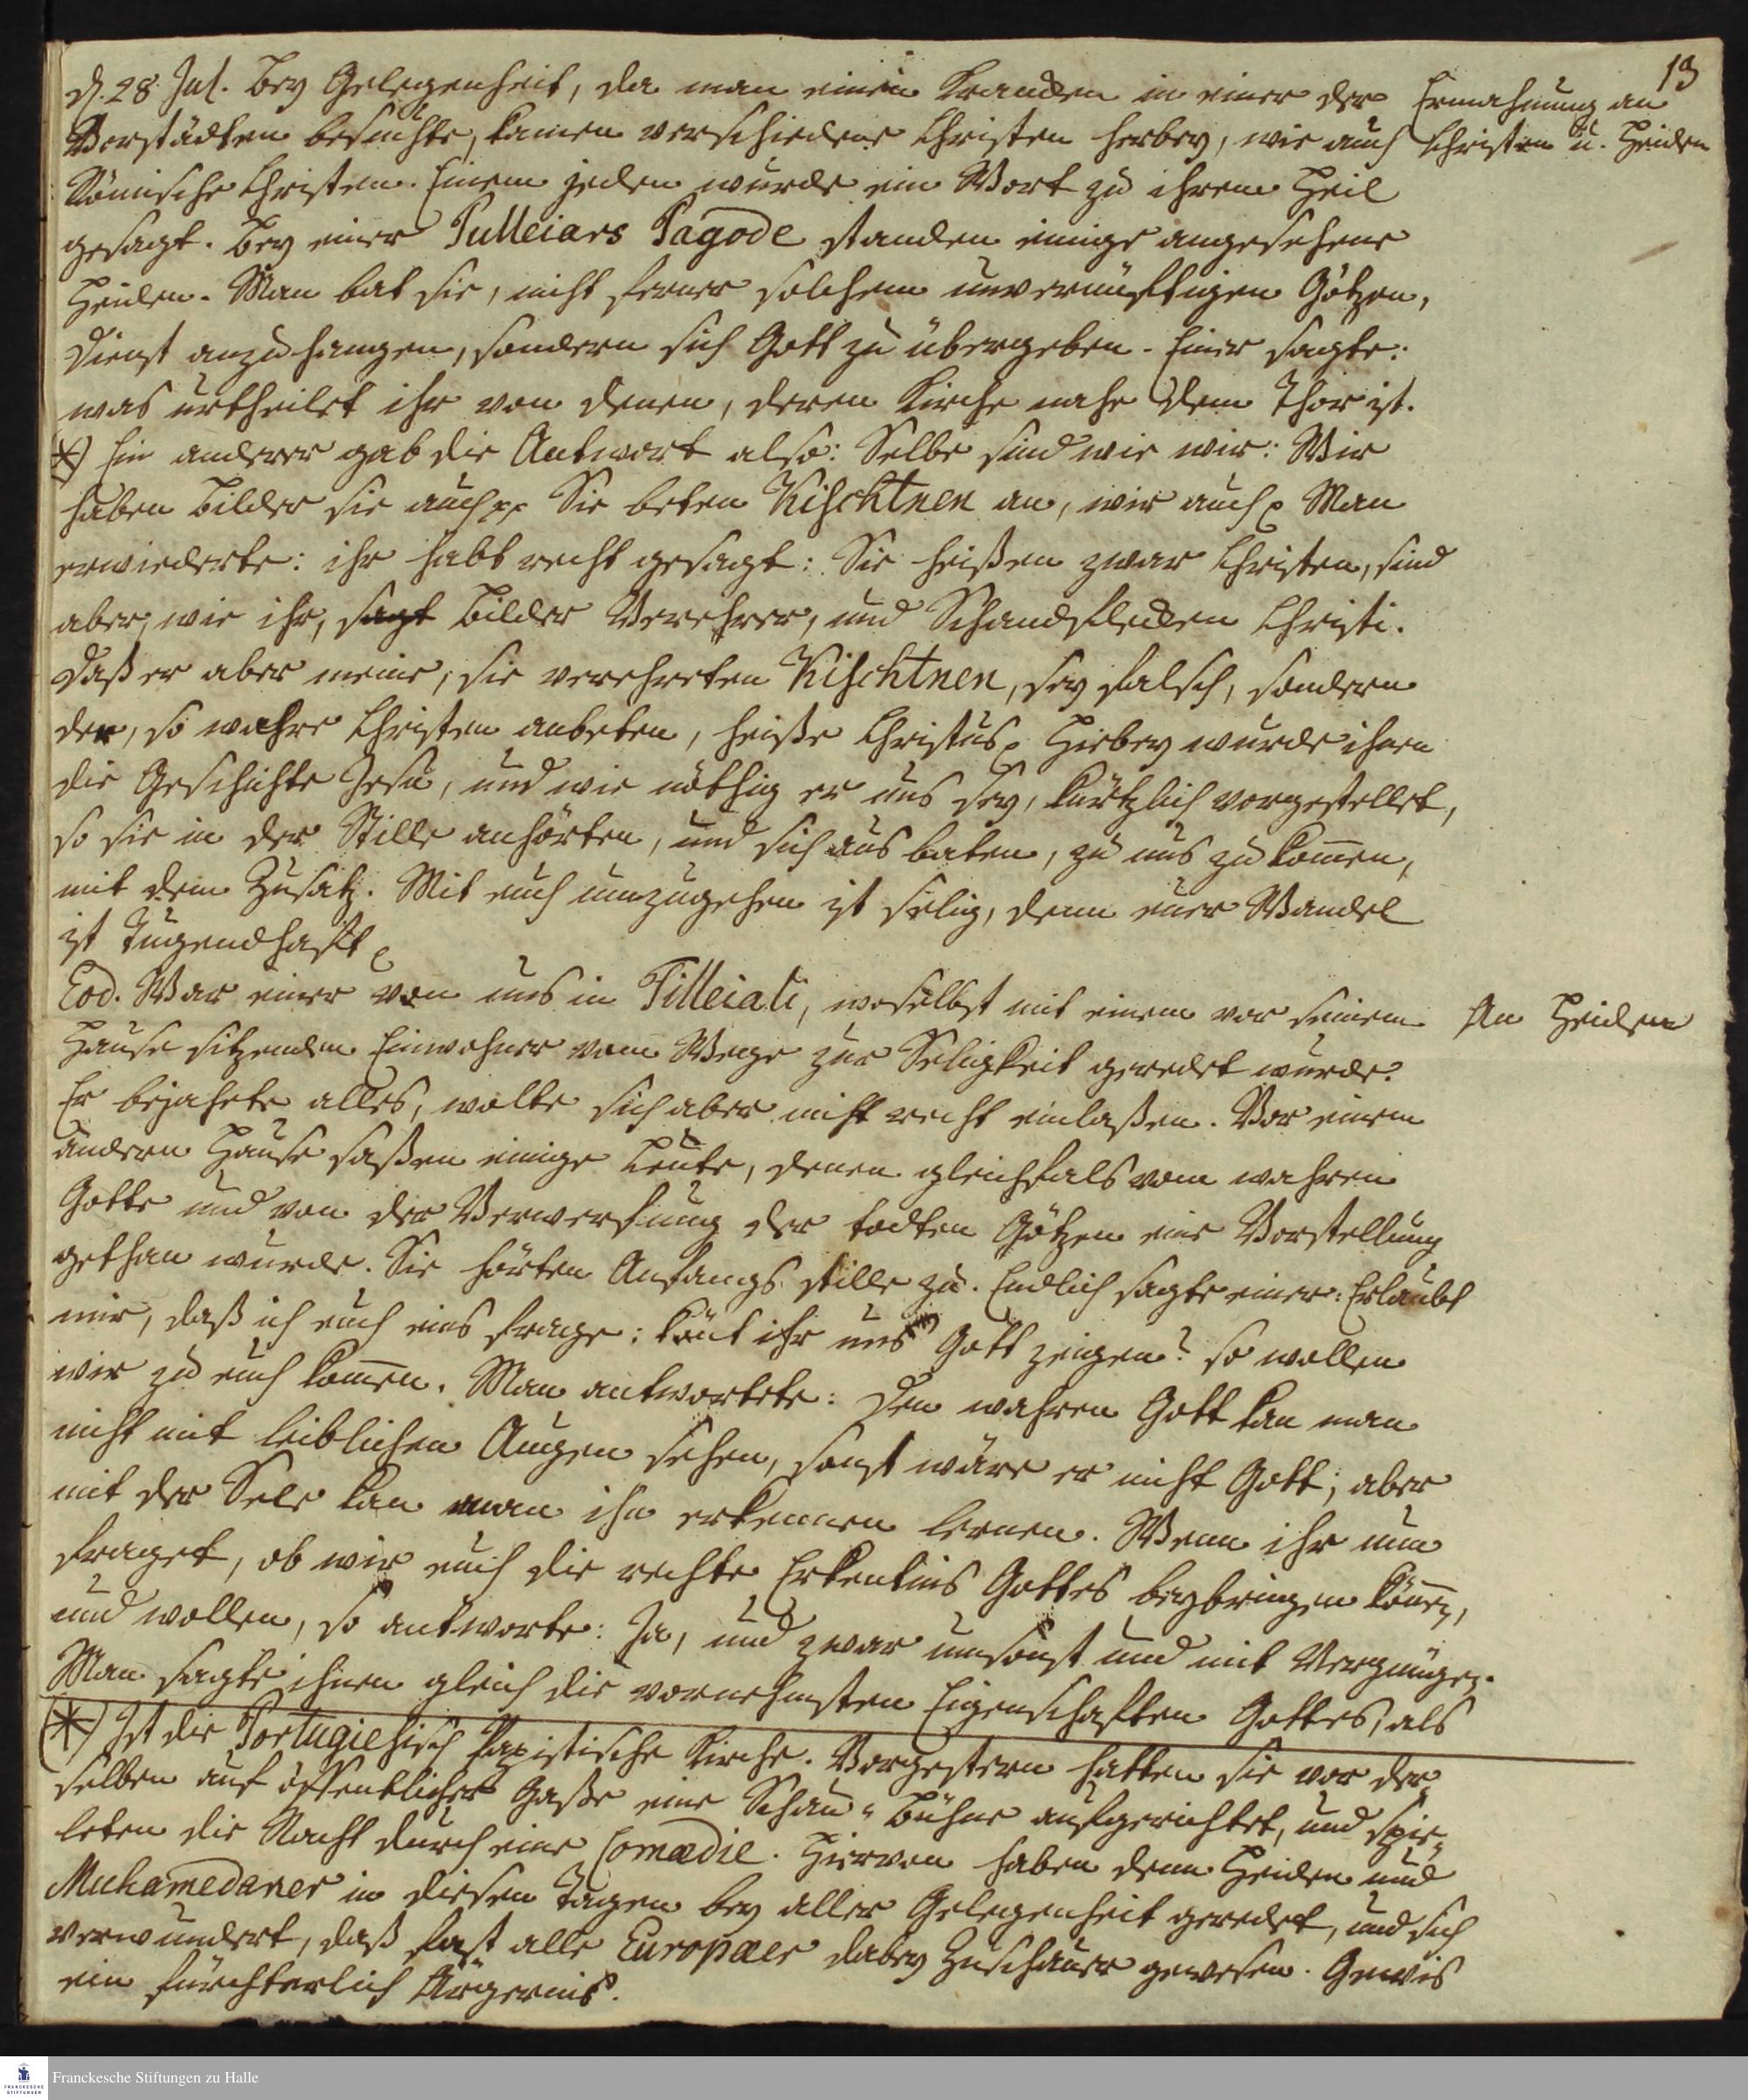 13
d. 28 Jul. Bey Gelegenheit, da man einen Krancken in einer der
Vorstädten besuchte, kamen verschiedene Christen herbey, wie auch
Römische Christen. Einem jeden wurde ein Wort zu ihrem Heil
gesagt. Bey einer Pulleiars Pagode standen einige angesehene
Heiden. Man bat sie, nicht ferner solchem unvernünftigen Götzen,
Dienst anzuhangen, sondern sich Gott zu übergeben. Einer sagte:
was urtheilet ihr von denen, deren Kirche nahe dem Thor ist.
*) Ein anderer gab die Antwort also: Selbe sind wie wir: Wir
haben Bilder sie auch pp Sie beten Kischtnen an, wir auch p Man
erwiederte: ihr habt recht gesagt: Sie heißen zwar Christen, sind
aber, wie ihr, sagt Bilder Verehrer, und Schandflecken Christi.
Daß er aber meine, sie verehreten Kischtnen, sey falsch, sondern
der, so wahre Christen anbeten, heiße Christus p Hiebey wurde ihnen
die Geschichte Jesu, und wie nöthig er uns sey, kürtzlich vorgestellet,
so sie in der Stille anhörten, und sich aus baten, zu uns zu kom̄en,
mit dem Zusatz. Mit euch umzugehen ist selig, denn euer Wandel
ist Tugendhafft p
Eod. War einer von uns in Tilleiali, woselbst mit einem vor seinem
Hause sitzenden Einwohner vom Wege zur Seligkeit geredet wurde.
Er bejahete alles, wolte sich aber nicht recht einlaßen. Vor einem
anderen Hause saßen einige Leute, denen gleichfals vom wahren
Gotte und von der Verwerfung der todten Götzen eine Vorstellung
gethan wurde. Sie hörten Anfangs stille zu. Endlich sagte einer: Erlaubt
mir, daß ich euch eins frage: kön̄t ihr uns Gott zeigen? so wollen
wir zu euch kom̄en. Man antwortete: Den wahren Gott kan man
nicht mit leiblichen Augen sehen, sonst wäre er nicht Gott; aber
mit der Sele kan man ihn erkennen lernen. Wenn ihr nun
fraget, ob wir euch die rechte Erkentnis Gottes beybringen kön̄en,
und wollen, so antworte: Ja, und zwar umsonst und mit Vergnügen.
Man sagte ihnen gleich die vornehmsten Eigenschafften Gottes, als
*) Ist die Portugiesisch Papistische Kirche. Vorgestern hatten sie vor der
selben auf öffentlicher Gaße eine Schau-Bühne aufgerichtet, und spie-
leten die Nacht durch eine Comœdie. Hiervon haben denn Heiden und
Muhamedaner in diesen Tagen bey aller Gelegenheit geredet, und sich
verwundert, daß fast alle Europæer dabey Zuschauer gewesen. Gewis
ein fürchterlich Ärgernis.
Ermahnung an
Christen u. Heiden
An Heiden
Franckesche Stiftungen zu Halle
FRANCKESCHE
STIFTUNGEN